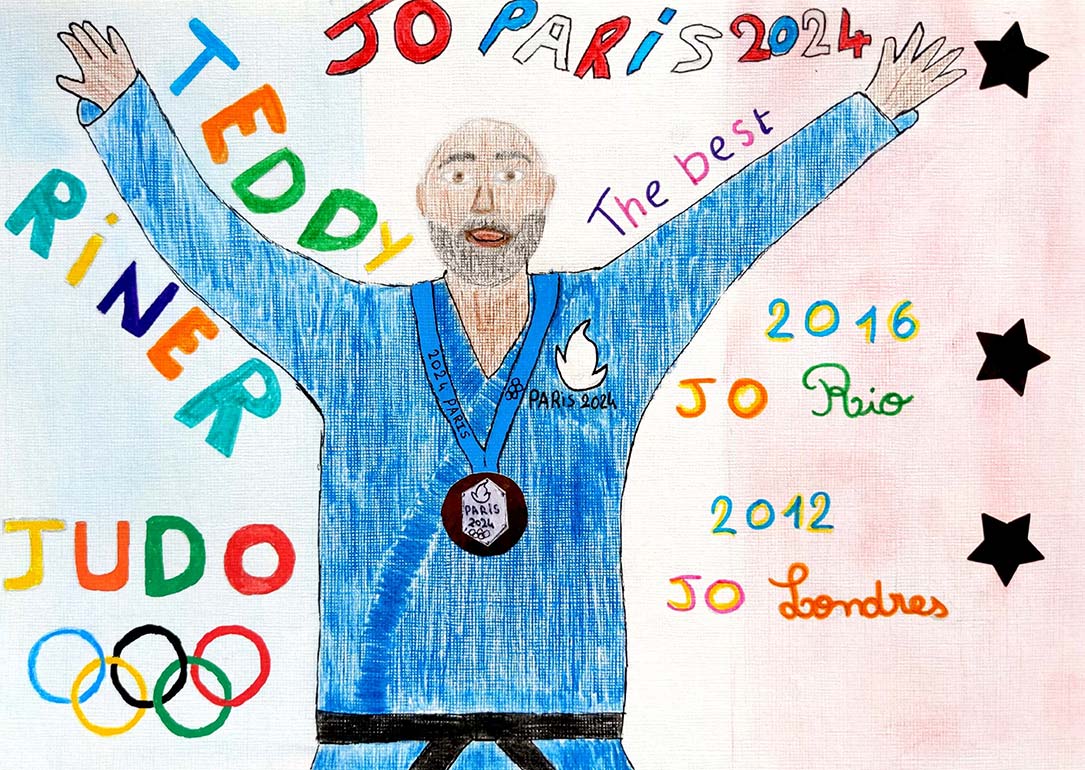 JO PARiS 2024
TEDDY
RiNER
The best
2016
JO Rio
2012
JO Londres
JUDO
2024 PARIS
PARiS 2024
PARIS
2024